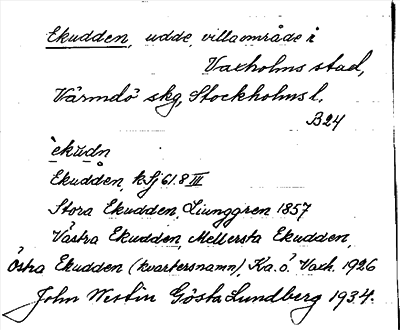 Ekudden, udde, villaområde i
Vaxholms stad,
Värmdö skg, Stockholms l.
B24
`ekŭdn
Ekudden, kSj 61.8 III
Stora Ekudden, Ljunggren 1857
Västra Ekudden, Mellersta Ekudden,
Östra Ekudden (kvartersnamn) Ka. ö. Vaxh. 1926
John Westin Gösta Lundberg 1934.